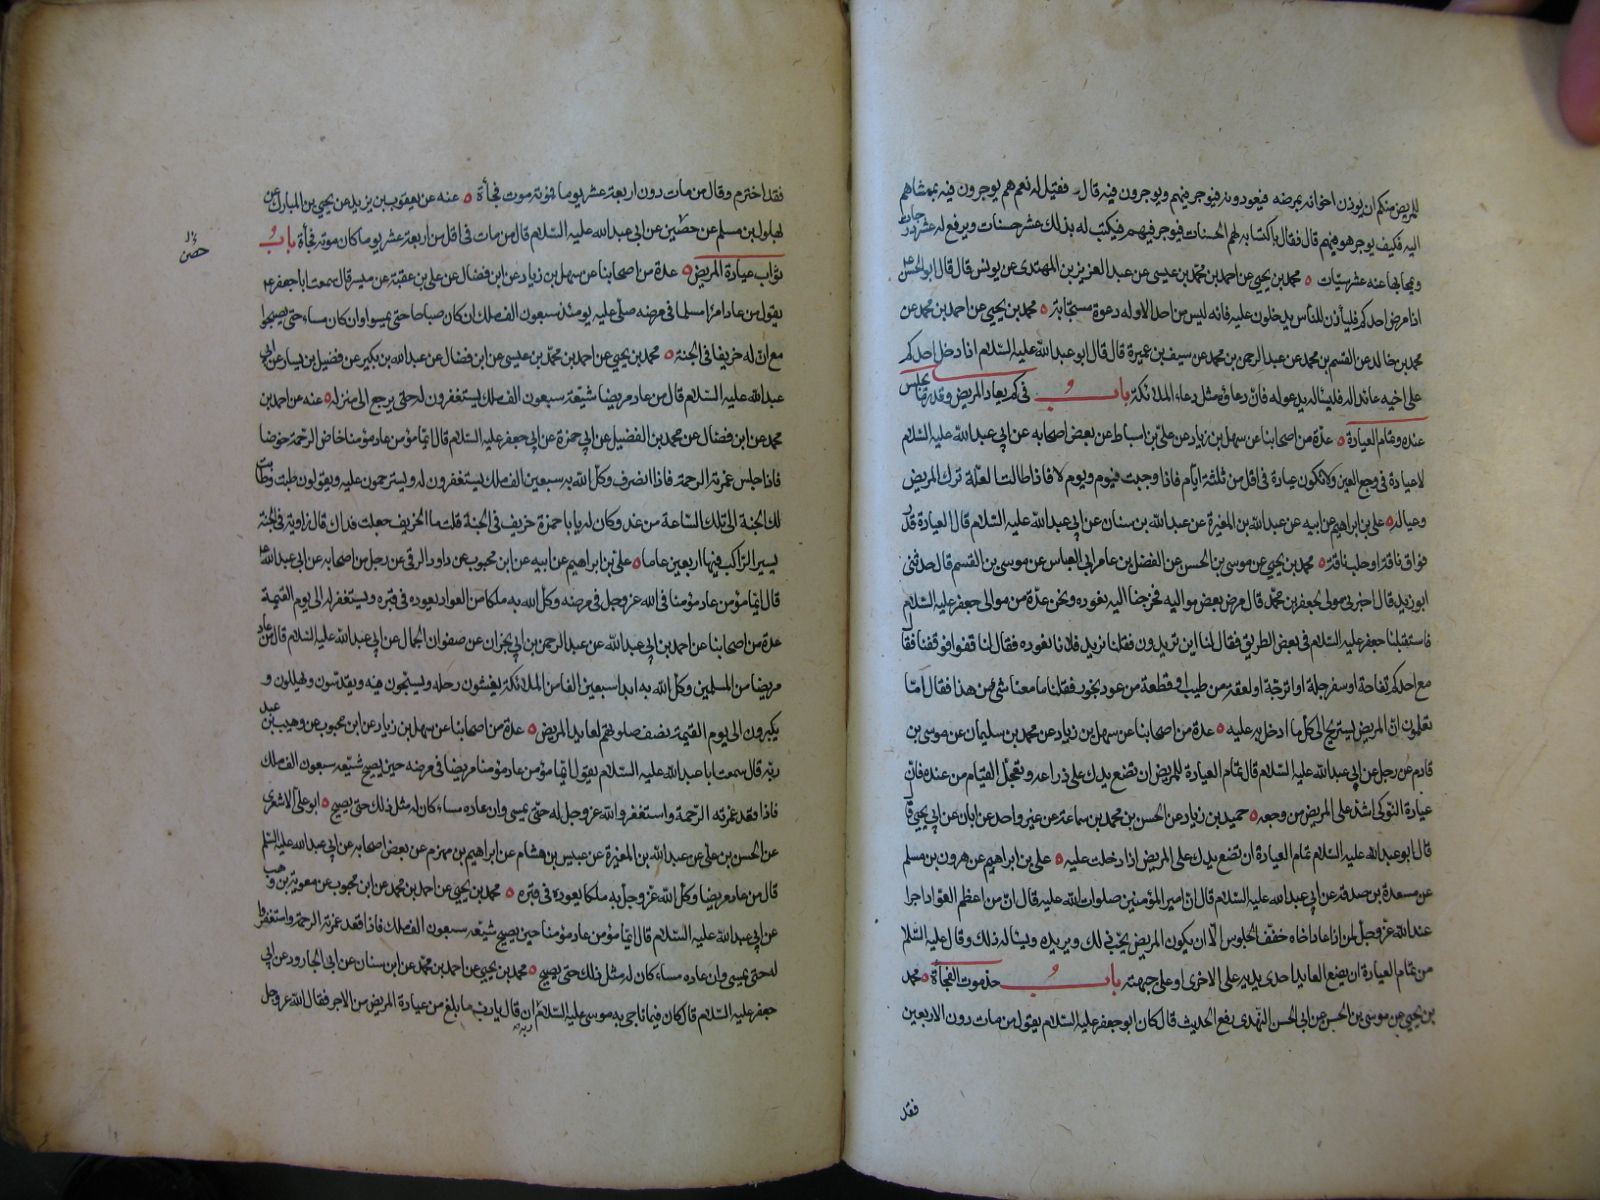 للمريض منكم ان يوذن اخوانه بمرضه فيعودونه فيوجر فيهم ويوجرون فيه قال فقيل له نعم هم يوجرون فيه بممشاهم
اليه فكيف يوجر هو فيهم قال فقال باكتسابه لهم الحسنات فيوجر فيهم فيكتب له بذلك عشر حسنات ويرفع له عشر درجات
ويمحا بها عنه عشر سيئات محمد بن يحيى عن احمد بن محمد بن عيسى عن عبد العزيز بن المهتدى عن يونس قال قال ابو الحسن
اذا مرض احدكم فلياذن للناس يدخلون عليه فانه ليس من احد الا وله دعوة مستجابة محمد بن يحيى عن احمد بن محمد عن
محمد بن خالد عن القسم بن محمد عن عبد الرحمن بن محمد عن سيف بن عميرة قال قال ابو عبد الله عليه السلام اذا دخل احدكم
على اخيه عائدا له فليسئاله يدعو له فان دعاؤه مثل دعاء الملائكة باب فى كم يعاد المريض وقدر ما يجلس
عنده وتمام العيادة عدة من اصحابنا عن سهل بن زياد عن على بن اسباط عن بعض اصحابه عن ابى عبد الله عليه السلام
لا عيادة فى وجع العين ولا تكون عيادة فى اقل من ثلثة ايام فاذا وجبت فيوم ويوم لا فاذا طالت العلة ترك المريض
وعياله على بن ابراهيم عن ابيه عن عبد الله بن المغيرة عن عبد الله بن سنان عن ابى عبد الله عليه السلام قال العيادة قدر
فواق ناقة او حلب ناقة محمد بن يحيى عن موسى بن الحسن عن الفضل بن عامر ابى العباس عن موسى بن القسم قال حدثنى
ابو زيد قال اخبرنى مولى لجعفر بن محمد قال مرض بعض مواليه فخرجنا اليه نعوده ونحن عدة من موالى جعفر عليه السلام
فاستقبلنا جعفر عليه السلام فى بعض الطريق فقال لنا اين تريدون فقلنا نريد فلانا نعوده فقال لنا قفوا فوقفنا فقال
مع احدكم تفاحة او سفرجلة او اترجة او لعقة من طيب او قطعة من عود بخور فقلنا ما معنا شئ من هذا فقال اما
تعلمون ان المريض يستريح الى كل ما ادخل به عليه عدة من اصحابنا عن سهل بن زياد عن محمد بن سليمان عن موسى بن
قادم عن رجل عن ابى عبد الله عليه السلام قال تمام العيادة للمريض ان تضع يدك على ذراعه وتعجل القيام من عنده فان
عيادة النوكى اشد على المريض من وجعه حميد بن زياد عن الحسن بن محمد بن سماعة عن غير واحد عن ابان عن ابى يحيى قال
قال ابو عبد الله عليه السلام تمام العيادة ان تضع يدك على المريض اذا دخلت عليه على بن ابراهيم عن هرون بن مسلم
عن مسعدة بن صدقة عن ابى عبد الله عليه السلام قال ان امير المؤمنين صلوات الله عليه قال ان من اعظم العواد اجرا
عند الله عز وجل لمن اذا عاد اخاه خفف الجلوس الا ان يكون المريض يحب ذلك ويريده ويساله ذلك وقال عليه السلام
من تمام العيادة ان يضع العايد احدى يديه على الاخرى او على جبهته باب حد موت الفجأة محمد
بن يحيى عن موسى بن الحسن عن ابى الحسن النهدى رفع الحديث قال كان ابو جعفر عليه السلام يقول من مات دون الاربعين
فقد
فقد اخترم وقال من مات دون اربعة عشر يوما فموته موت فجأة عنه عن يعقوب بن يزيد عن يحيى بن المبارك عن
بهلول بن مسلم عن حصين عن ابى عبد الله عليه السلام قال من مات فى اقل من اربعة عشر يوما كان موته فجأة باب
ثواب عيادة المريض عدة من اصحابنا عن سهل بن زياد عن ابن فضال عن على بن عقبة عن ميسر قال سمعت ابا جعفر
يقول من عاد امرأ مسلما فى مرضه صلى عليه يومئذ سبعون الف ملك ان كان صباحا حتى يمسوا وان كان مساء حتى يصبحوا
مع ان له خريفا فى الجنة محمد بن يحيى عن احمد بن محمد بن عيسى عن ابن فضال عن عبد الله بن بكير عن فضيل بن يسار عن ابى
عبد الله عليه السلام قال من عاد مريضا شيعه سبعون الف ملك يستغفرون له حتى يرجع الى منزله عنه عن احمد بن
محمد عن ابن فضال عن محمد بن الفضيل عن ابى حمزة عن ابى جعفر عليه السلام قال ايما مؤمن عاد مؤمنا خاض الرحمة خوضا
فاذا جلس غمرته الرحمة فاذا انصرف وكل الله به سبعين الف ملك يستغفرون له ويسترحمون عليه ويقولون طبت وطابت
لك الجنة الى تلك الساعة من غد وكان له يا با حمزة خريف فى الجنة قلت ما الخريف جعلت فداك قال زاوية فى الجنة
يسير الراكب فيها اربعين عاما على بن ابراهيم عن ابيه عن ابن محبوب عن داود الرقى عن رجل من اصحابه عن ابى عبد الله
قال ايما مؤمن عاد مؤمنا فى الله عز وجل فى مرضه وكل الله به ملكا من العواد يعوده فى قبره ويستغفر له الى يوم القيمة
عدة من اصحابنا عن احمد بن ابى عبد الله عن عبد الرحمن بن ابى نجران عن صفوان الجمال عن ابى عبد الله عليه السلام قال من عاد
مريضا من المسلمين وكل الله به ابدا سبعين الفا من الملائكة يغشون رحله ويسبحون فيه ويقدسون ويهللون و
يكبرون الى يوم القيمة نصف صلوتهم لعايد المريض عدة من اصحابنا عن سهل بن زياد عن ابن محبوب عن وهيب بن عبد
ربه قال سمعت ابا عبد الله عليه السلام يقول ايما مؤمن عاد مؤمنا مريضا فى مرضه حين يصبح شيعه سبعون الف ملك
فاذا قعد غمرته الرحمة واستغفروا الله عز وجل له حتى يمسى وان عاده مساء كان له مثل ذلك حتى يصبح ابو على الاشعرى
عن الحسن بن على عن عبد الله بن المغيرة عن عبيس بن هشام عن ابراهيم بن مهزم عن بعض اصحابه عن ابى عبد الله عليه السلم
قال من عاد مريضا وكل الله عز وجل به ملكا يعوده فى قبره محمد بن يحيى عن احمد بن محمد عن ابن محبوب عن معوية بن وهب
عن ابى عبد الله عليه السلام قال ايما مؤمن عاد مؤمنا حين يصبح شيعه سبعون الف ملك فاذا قعد غمرته الرحمة واستغفروا
له حتى يمسى وان عاده مساء كان له مثل ذلك حتى يصبح محمد بن يحيى عن احمد بن محمد عن ابن سنان عن ابى الجارود عن ابى
جعفر عليه السلام قال كان فيما ناجى به موسى عليه السلام ربه ان قال يا رب ما بلغ من عيادة المريض من الاجر فقال الله عز وجل